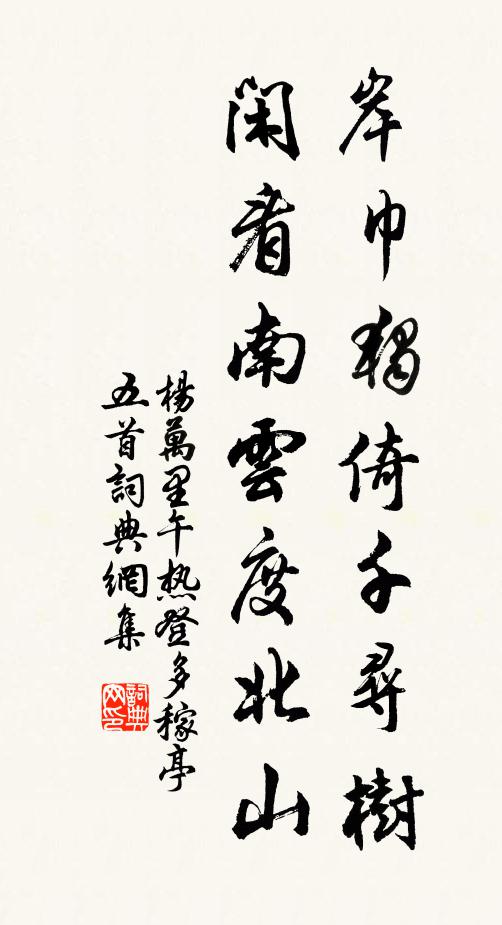 岸巾獨倚千尋樹
閑看南雲度北山
楊萬里午熱登多稼亭
五首詞典網集
詞典
网印